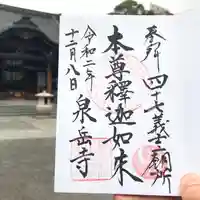 奉拜
四十七義士廟所
本尊釋迦如来
令和二年
十二月八日
泉岳寺